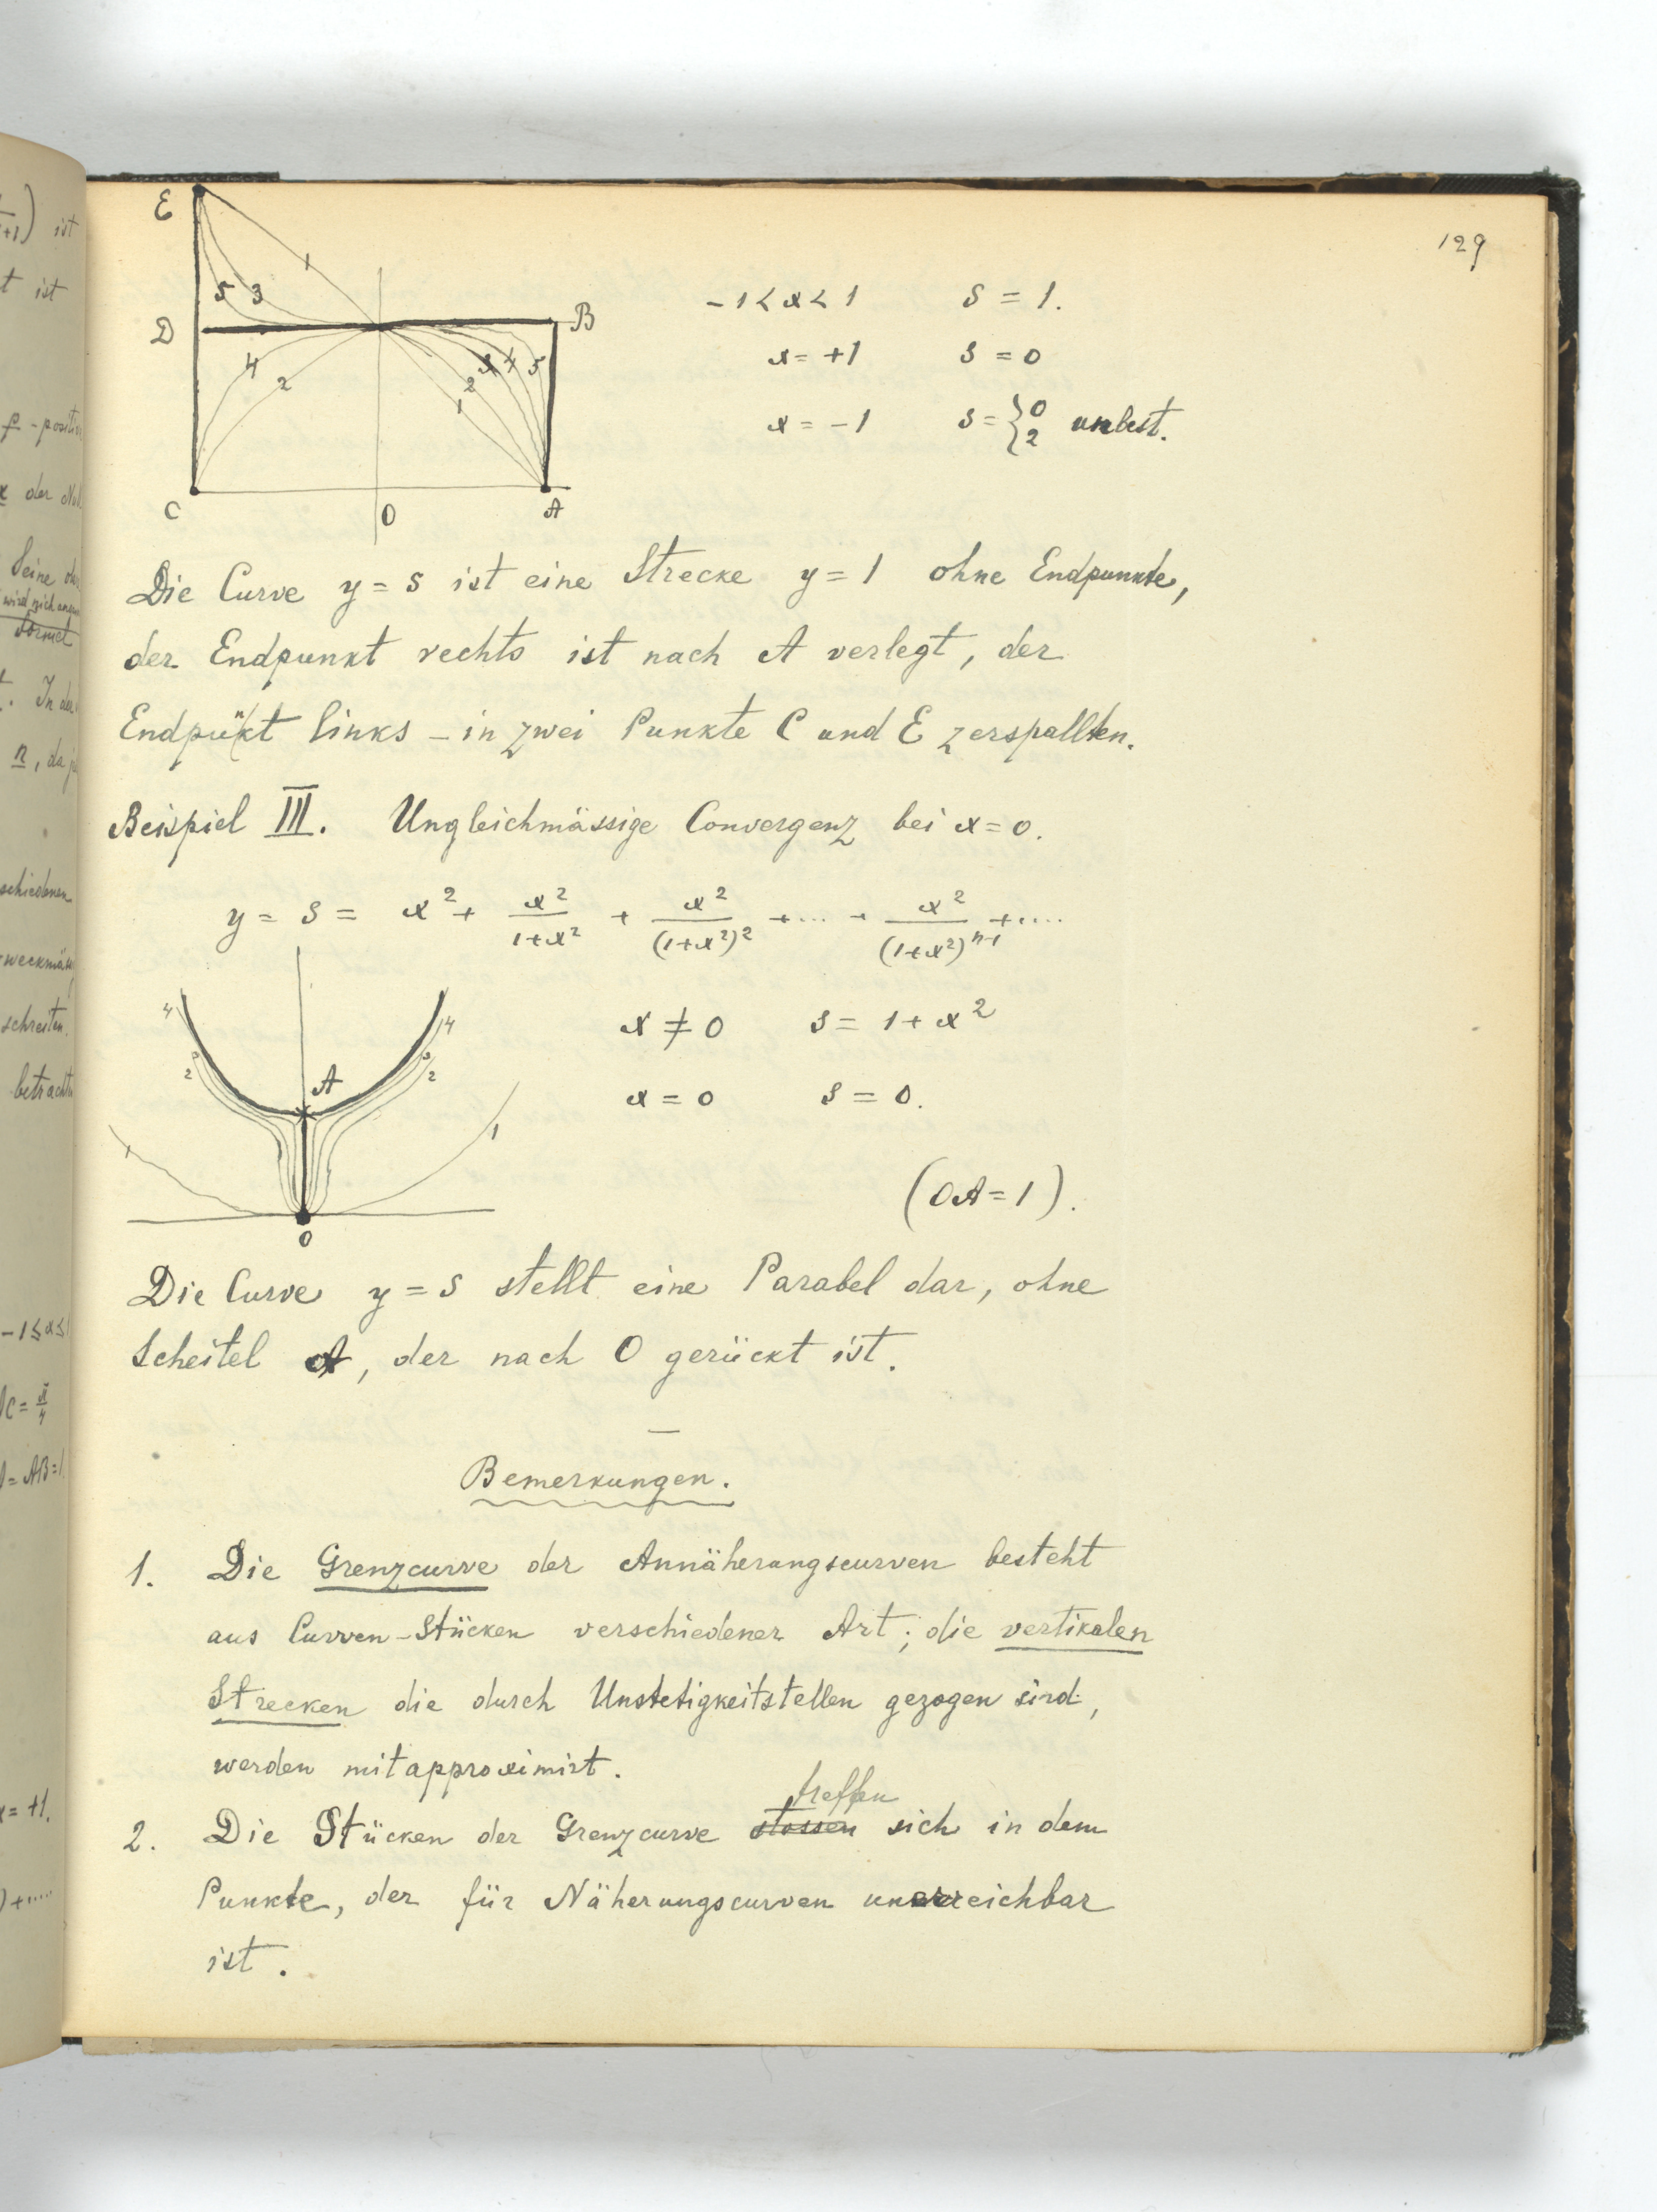 129
E
1
5 3
D
B
4
2
3 4 5
2
1
C
O
A
-1 < x < 1 s = 1.
x = +1 s = 0
x = -1 s = { 0 2 unbest.
Die Curve y = s ist eine Strecke y = 1 ohne Endpunkte,
der Endpunkt rechts ist nach A verlegt, der
Endpunkt links – in zwei Punkte C und E zerspallten.
Beispiel III. Ungleichmässige Convergenz bei x = 0.
y = s = x² + x²/(1+x²) + x²/(1+x²)² + ... + x²/(1+x²)ⁿ⁻¹ + ....
x ≠ 0 s = 1 + x²
x = 0 s = 0.
(OA = 1).
4 4
3 3
2 2
A
1 1
O
Die Curve y = s stellt eine Parabel dar, ohne
Scheitel A, der nach O gerückt ist.
Bemerkungen.
1. Die Grenzcurve der Annäherungscurven besteht
aus Curven-Stücken verschiedener Art; die vertikalen
Strecken die durch Unstetigkeitstellen gezogen sind,
werden mitapproximirt.
treffen
2. Die Stücken der Grenzcurve stossen sich in dem
Punkte, der für Näherungscurven unerreichbar
ist.
ist
t ist
der
wird sich
t. In der
n, da
schiedenen
schreiten.
-1 ≤ x ≤ 1
C = π/4
= AB = 1.
x = +1.
) + ....